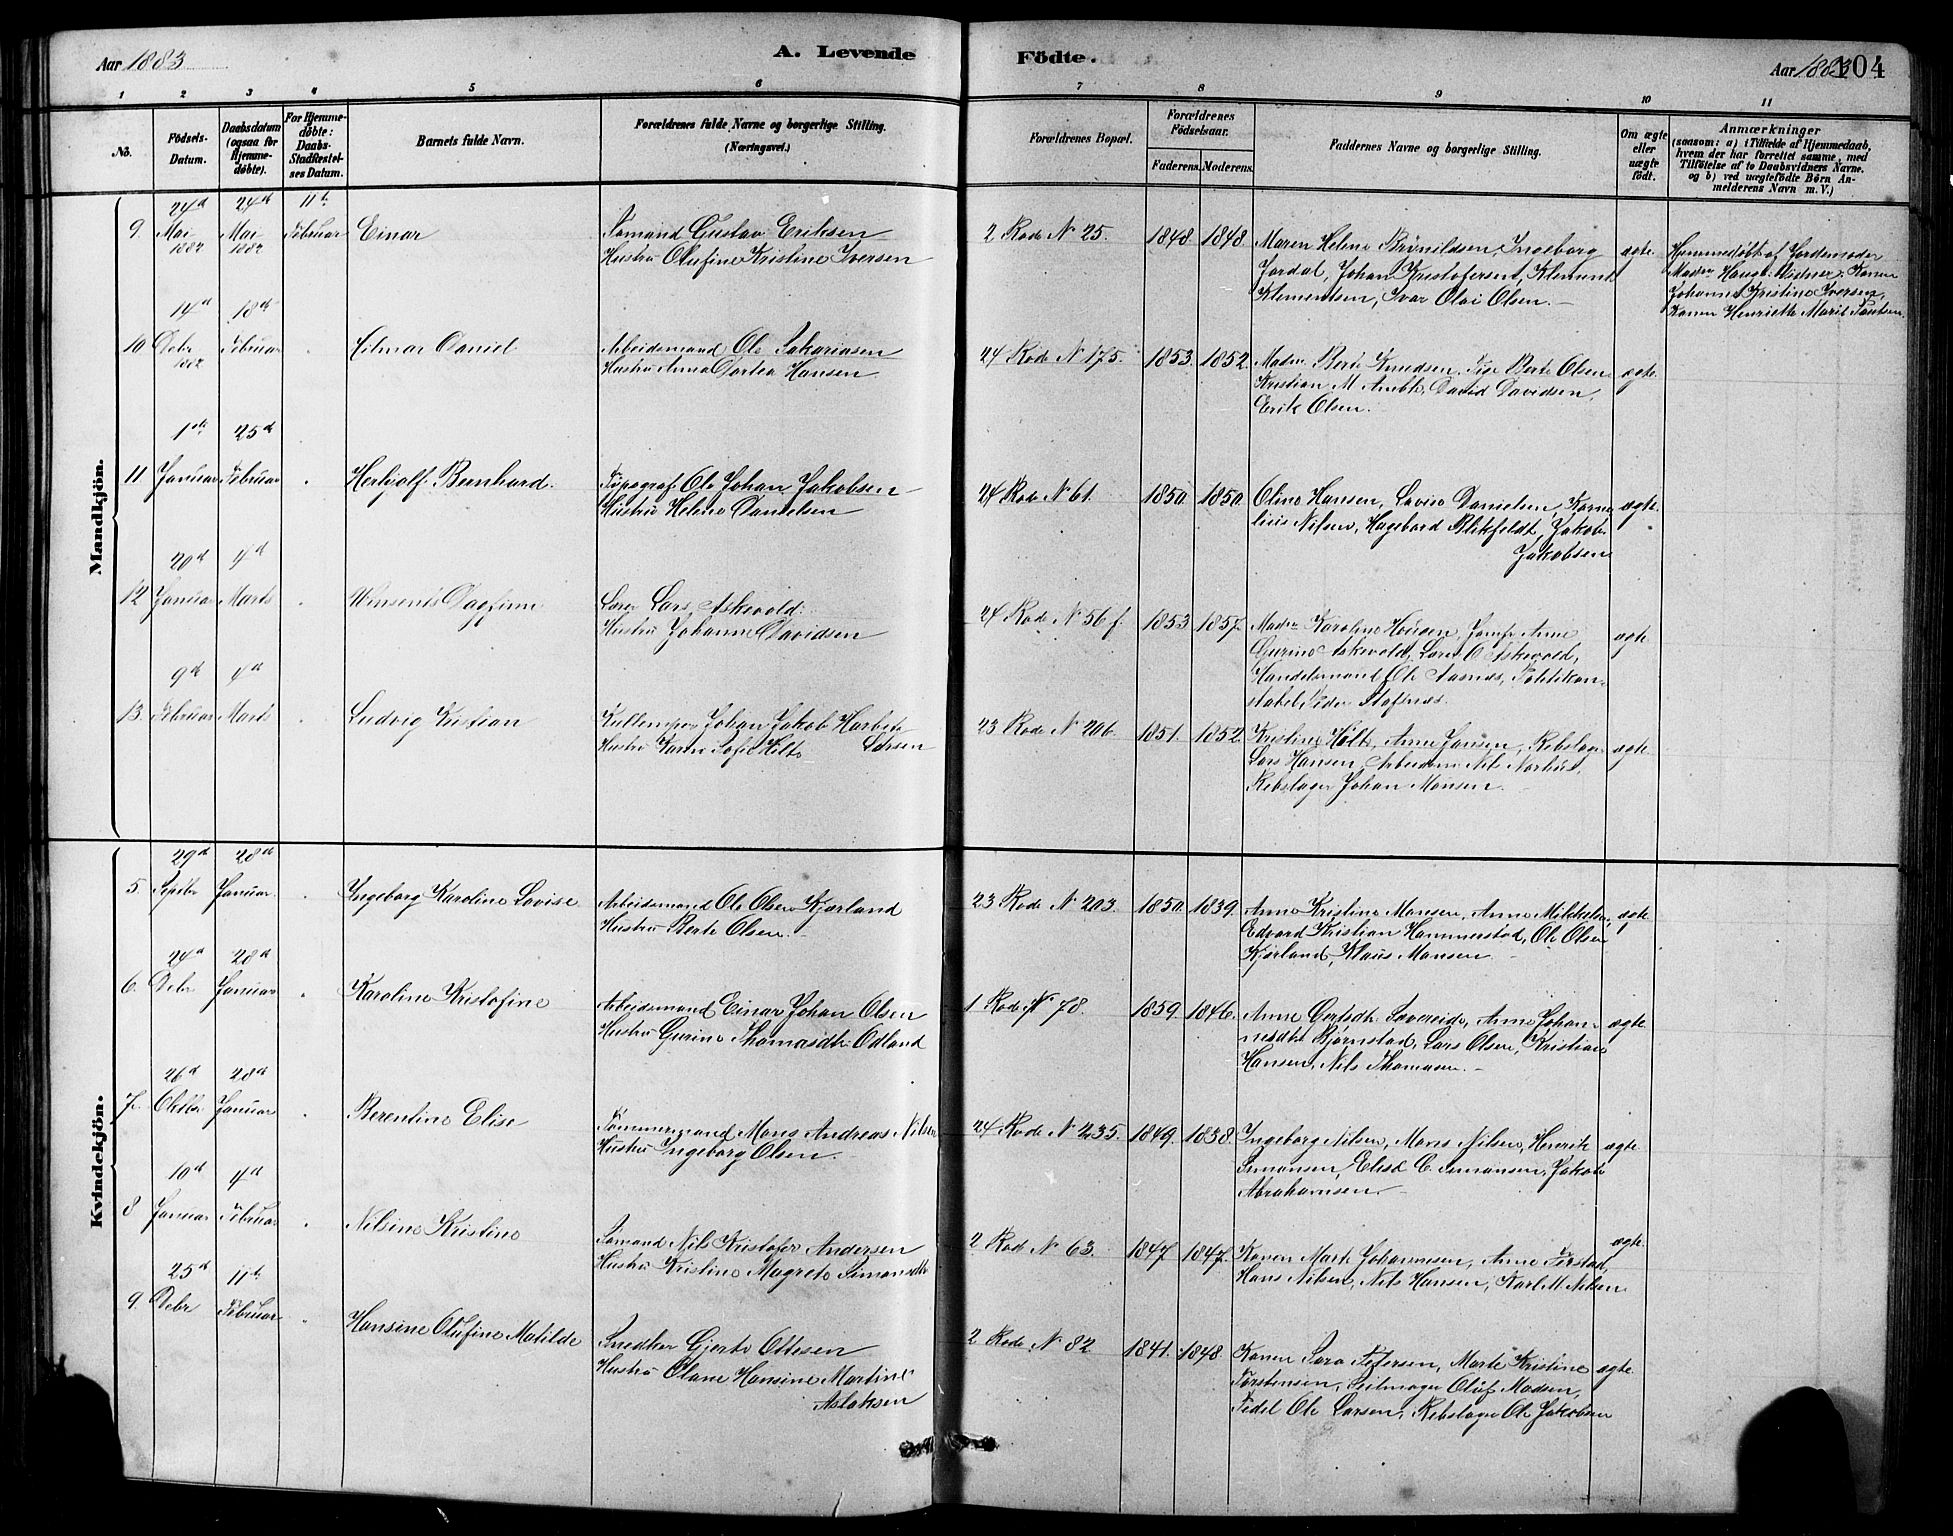 Aar 1883
A. Levende
Födte.
Aar 1883
104
1 2 3 4 5 6 7 8 9 10 11
No.
Födsels-
Datum.
Daabsdatum
(ogsaa for
Hjemme-
döbte).
For Hjemme-
døbte:
Daabs-
Stadfæstel-
ses Datum.
Barnets fulde Navn.
Forældrenes fulde Navne og borgerlige Stilling.
(Næringsvei.)
Forældrenes Bopæl.
Forældrenes
Födselsaar.
Faderens. Moderens.
Faddernes Navne og borgerlige Stilling.
Om ægte
eller
uægte
födt.
Anmærkninger
(saasom: a) i Tilfælde af Hjemmedaab,
hvem der har forrettet samme, med
Tilföielse af to Daabsvidners Navne.
og b) ved uægtefödte Börn An-
melderens Navn m. V.)
Mandkjön.
24d 24d 11te
9. Mai Mai Februar Einar
1882 1882
Sömand Gustav Eriksen
Hustru Olufine Kristine Iversen
2 Rode N 25. 1848. 1848.
Maren Helene Brynildsen, Ingeborg
Jordal, Johan Kristofersen, Klement
Klementsen, Ivar Olai Olsen.
ægte.
Hjemmedöbt af Jordemoder
Madm Haugl. Vidner: Konen
Johanne Kristine Iversen,
Konen Henriette Marie
14d 18d
10 Debr Februar Hilmar Daniel
1882
Arbeidsmand Ole Sakariasen
Hustru Anna Dortea Hansen
24 Rode N 175. 1853. 1852.
Madm Berte Knudsen, Pige Berte Olsen
Kristian M. David Davidsen,
Erik Olsen.
ægte
1ste 25d
11 Januar Februar Herljolf Bernhard.
Typograf Ole Johan Jakobsen
Hustru Helene Danielsen
24 Rode N 61. 1850 1850.
Oline Hansen, Lovise Danielsen, Korne
lius Nilsen, Hagebard Blikfeldt, Jakob
Jakobsen
ægte.
20d 4d
12 Januar Marts Winsents Dagfinn
Lærer Lars Askevold.
Hustru Johanne Davidsen
24 Rode N 56 f. 1853 1857.
Madm Karoline Hansen, Jomfr Anne
Gurine Askevold, Lærer O. Askevold,
Handelsmand Ole Aasnes, Politikon-
stabel Peder Stafsnes.
ægte
9d 4d
13. Februar Marts Ludvig Kristian
Johan Jakob
Larsen
Hustru Karen Sofie Holte
23 Rode N 206. 1851. 1852.
Kristine Holt, Anne Jansen, Rebslager
Lars Hansen, Arbeidsm Nils Norhus,
Rebslager Johan Monsen.
ægte
Kvindekjön.
29d 28d
5. Septbr Januar Ingeborg Karoline Lovise
Arbeidsmand Ole Olsen Kjørland
Hustru Berte Olsen.
23 Rode N 203. 1850 1839.
Anne Kristine Monsen, Anne Mikkelsen,
Edvard Kristian Hammerstad, Ole Olsen
Kjørland, Klaus Monsen.
ægte
24d 28d
6. Debr Januar Karoline Kristofine
Arbeidsmand Einar Johan Olsen
Hustru Gurine Thomasdtr Odland
1 Rode N 78. 1859. 1846.
Anne Gertsdtr. Lavereide, Anne Johan-
nesdtr Bjørnstad, Lars Olsen, Kristian
Hansen, Nils Thomasen.
ægte
26d 28d
7. Oktbr Januar Berentine Elise
Tömmermand Mons Andreas Nilsen
Hustru Ingeborg Olsen.
24 Rode N 235. 1849. 1838.
Ingeborg Nilsen, Mons Nilsen, Henrik
Simonsen, Elise C. Simonsen, Jakob
Abrahamsen.
ægte
10d 4d
8 Januar Februar Nilsine Kristine
Sömand Nils Kristofer Andersen
Hustru Kristine Magrete Simonsdtr
2 Rode N 63. 1847 1847.
Konen Marte Johannesen, Anne
Hans Nilsen, Nils Hansen, Karl M. Nilsen
ægte.
25d 11te
9. Debr Februar Hansine Olufine Matilde
Snedker Gjerts Ottesen
Hustru Olane Hansine Martine
Aslaksen
2 Rode N 82 1841. 1848.
Konen Sara Petersen, Marte Kristine
Torstensen, Seilmager Oluf Madsen,
Fidel Ole Larsen, Rebslager Ole Jakobsen
ægte